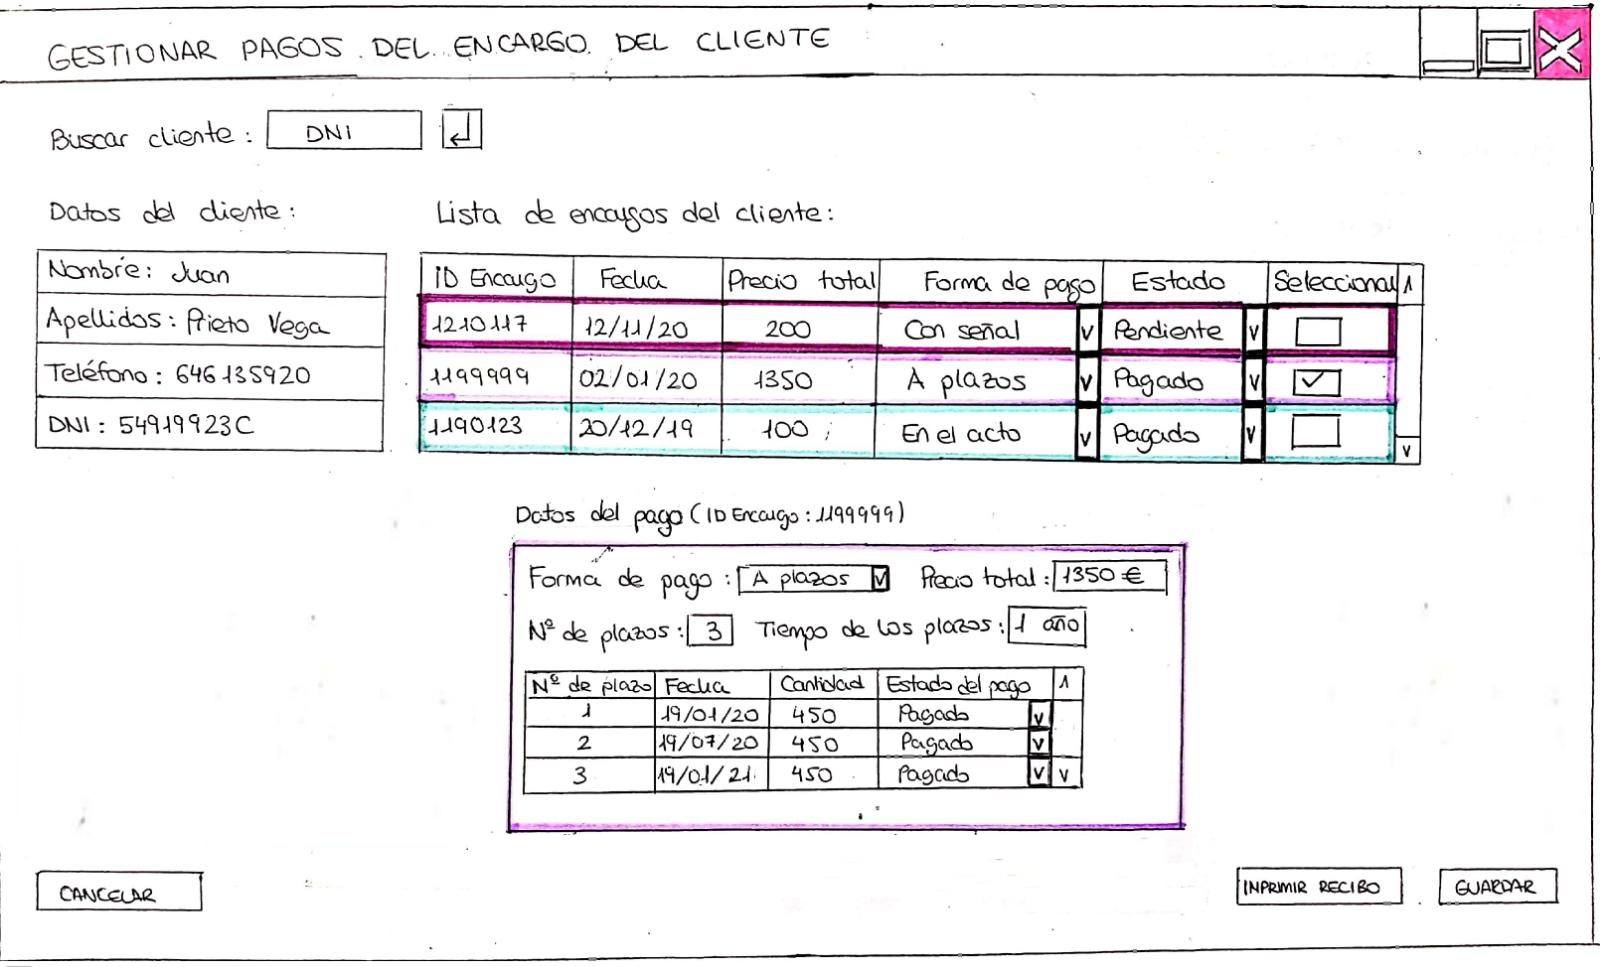 GESTIONAR PAGOS DEL ENCARGO DEL CLIENTE
Buscar cliente: DNI
Datos del cliente:
Nombre: Juan
Apellidos: Prieto Vega
Teléfono: 646135920
DNI: 54919923C
Lista de encargos del cliente:
ID Encargo Fecha Precio total Forma de pago Estado Seleccionar
1210117 12/11/20 200 Con señal Pendiente
1199999 02/01/20 1350 A plazos Pagado
1190123 20/12/19 100 En el acto Pagado
Datos del pago (ID Encargo: 1199999)
Forma de pago: A plazos Precio total: 1350 €
Nº de plazos: 3 Tiempo de los plazos: 1 año
Nº de plazo Fecha Cantidad Estado del pago
1 19/01/20 450 Pagado
2 19/07/20 450 Pagado
3 19/01/21 450 Pagado
CANCELAR
INPRIMIR RECIBO
GUARDAR